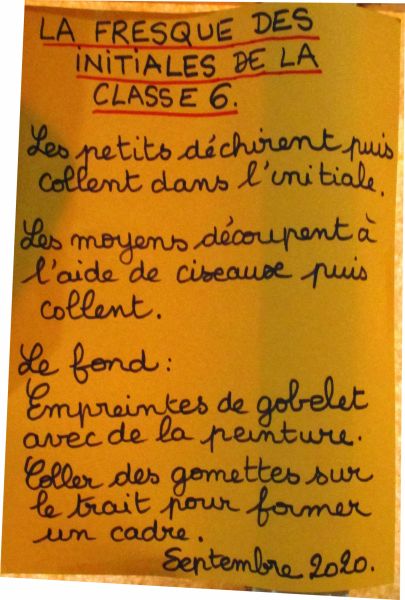 LA FRESQUE DES
INITIALES DE LA
CLASSE 6.
Les petits déchirent puis
collent dans l'initiale.
Les moyens découpent à
l'aide de ciseaux puis
collent.
Le fond :
Empreintes de gobelet
avec de la peinture.
Coller des gomettes sur
le trait pour former
un cadre.
Septembre 2020.